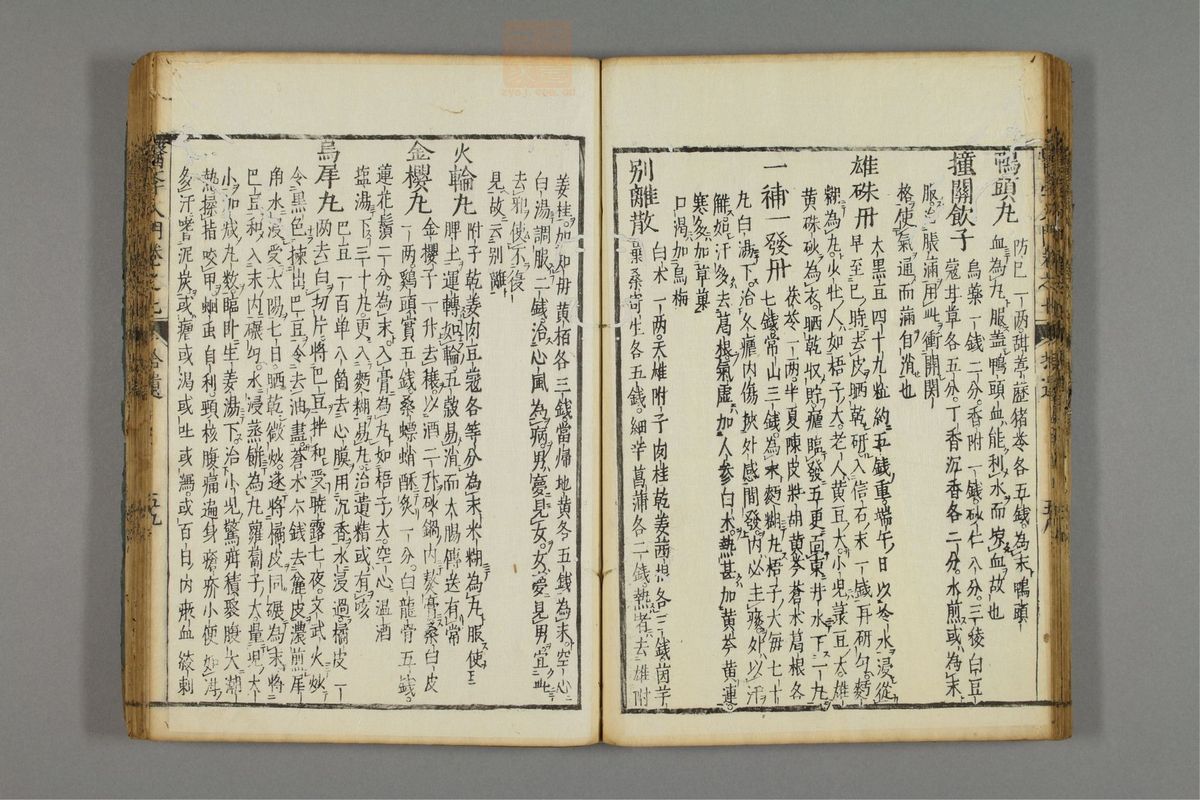 鴨頭丸 防巳一兩甜葶藶猪苓各五錢為末鴨頭
血為丸服盖鴨頭血能利水而故也
撞關飲子 烏藥一錢二分香附一錢砂仁八分三稜白豆
蔻甘草各五分丁香沉香各二分水煎或為末
服忌脹滿用此衝開関
格使氣通而滿自消也
雄硃丹 大黑豆四十九粒約五錢重端午日以冷水浸從
早至巳時去皮晒乾研入信石末一錢再研勻麪
糊為丸火壮人如梧子大老人黄豆大小兒菉豆大雄
黄硃砂為衣晒乾収貯瘧臨發五更向東井水下一丸
一補一發丹 茯苓一兩半夏陳皮柴胡黄芩蒼朮葛根各
七錢常山三錢為末麪糊丸梧子大每七十
丸白湯下治久瘧內傷挾外感間發內必主痰外以汗
解如汗多去葛根氣虛加人參白朮熱甚加黄芩黄連
寒多加草菓
口渴加烏梅
別離散 白朮一兩天雄附子肉桂乾姜茜根各三錢茵芋
葉桑寄生各五錢細辛菖蒲各二錢熱者去雄附
姜桂加知丹黄栢各三錢當歸地黄各五錢為末空心
白湯調服二錢治心風為病男夢見女女夢見男宜此
去邪使不復
見故云別離
火輪丸 附子乾姜肉豆蔻各等分為末米糊為丸服使
脾土運轉如輪五穀易消而大腸傳送有常
金櫻丸 金櫻子一升去穣以酒二升砂鍋內熬膏桑白皮
一兩鷄頭實五錢桑螵蛸酥炙一分白龍骨五錢
蓮花鬚二分為末入膏為丸如梧子大空心溫酒
塩湯下三十丸更入麪糊易丸治遺精或有
烏犀丸 巴豆一百单八箇去心膜用沉香水浸過橘皮一
兩去白切片將巴豆拌和受暁露七夜文武火炒
令黑色揀出巴豆令去油盡蒼朮六錢去麁皮濃煎犀
角水浸受太陽七日晒乾微炒遂將橘皮同碾為末將
巴豆和入末內碾勻水浸蒸餅為丸蘿蔔子大量児大
小加减丸數臨卧生姜湯下治小児驚疳積聚腹大潮
熱揉指咬甲蛔虫自利頸核腹痛遍身瘡疥小便如泔
多汗嗜泥炭或瘧或渴或吐或瀉或百日內痢血
醫學入門卷之七 拾遺 五九
拾遺 五八